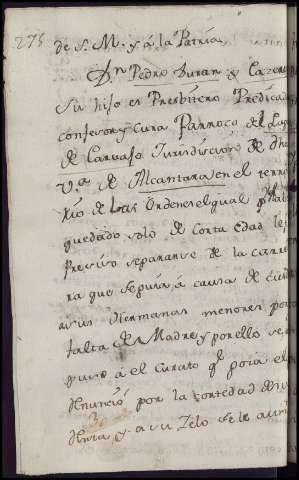 275
de S. M. y á la Patria.
Dn. Pedro Duran y Cazeres
Su hijo es Presbitero Predicad
confesor y Cura Parroco del Lug
de Carvajo Jurisdiccion de dha
Va. de Alcantara en el terri
de las Ordenes el qual pr. haver
quedado solo de corta edad le fue
Preciso separarse de la carre
ra que seguia á causa de cuidar
a sus Hermanas menores por
falta de Madre y por ello se
á el Curato qe. posia el
por la cortedad de su
Renta y a su Zelo se le